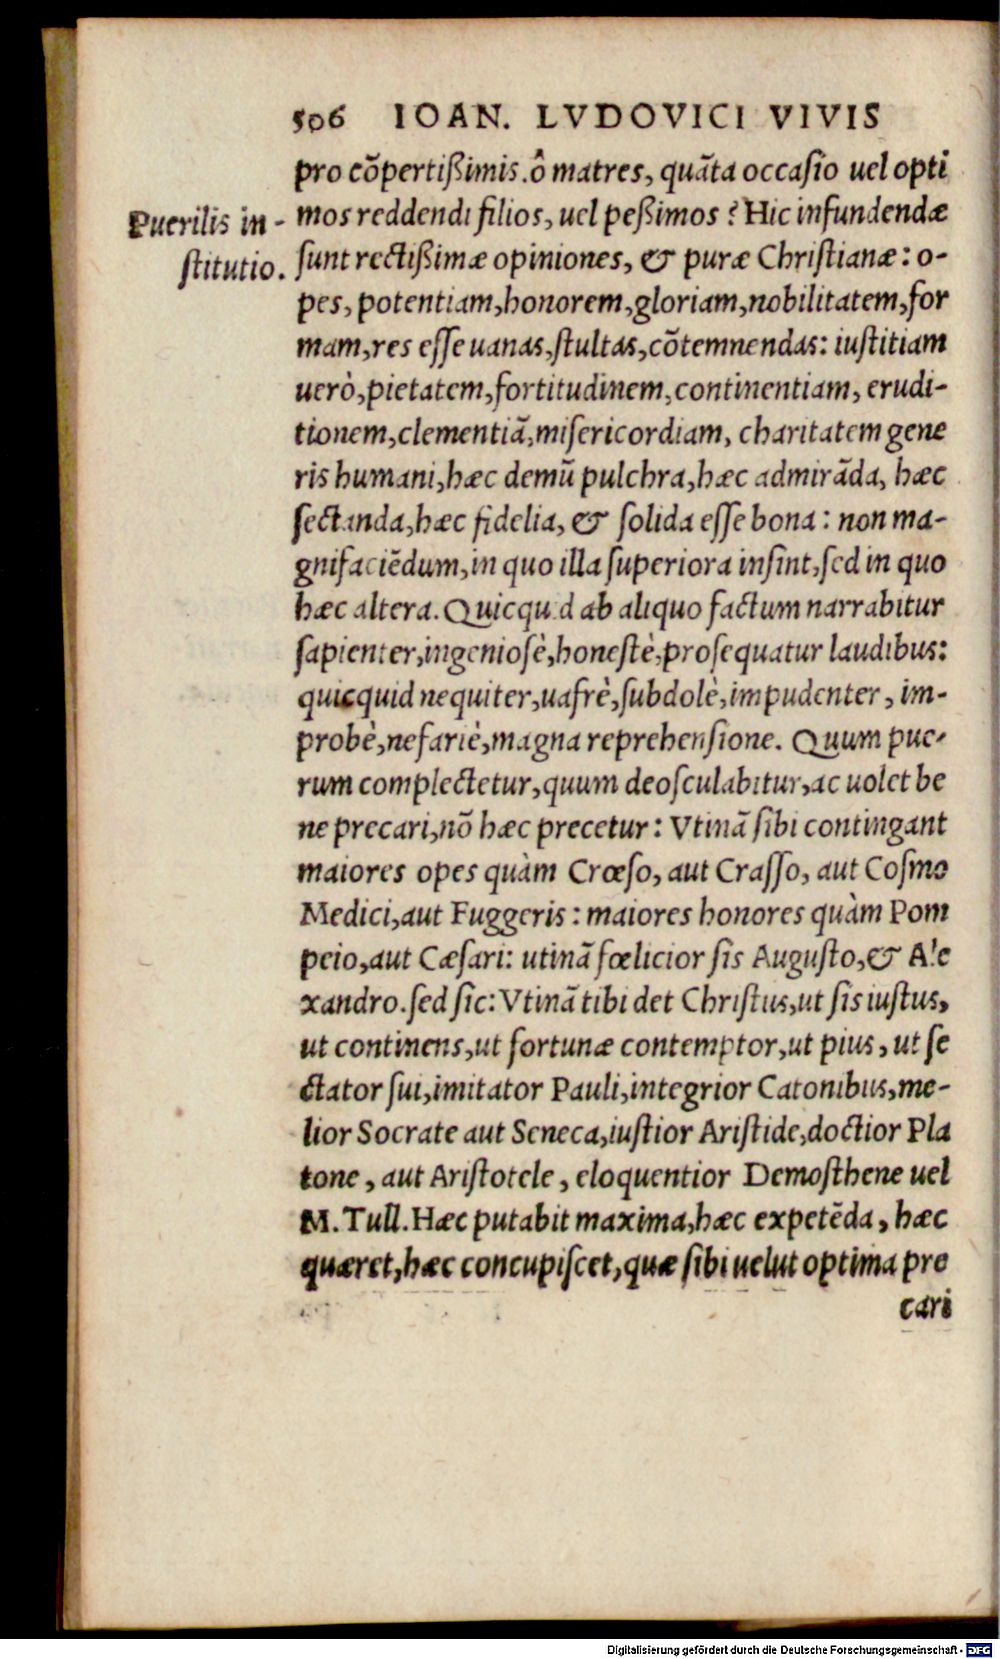 506 IOAN. LVDOVICI VIVIS
pro cõpertißimis. ô matres, quãta occasio uel opti
Puerilis in-
stitutio.
mos reddendi filios, uel peßimos? Hic infundendæ
sunt rectißimæ opiniones, & puræ Christianæ: o-
pes, potentiam, honorem, gloriam, nobilitatem, for
mam, res esse uanas, stultas, cõtemnendas: iustitiam
uerò, pietatem, fortitudinem, continentiam, erudi-
tionem, clementiã, misericordiam, charitatem gene
ris humani, hæc demũ pulchra, hæc admirãda, hæc
sectanda, hæc fidelia, & solida esse bona: non ma-
gnifaciẽdum, in quo illa superiora insint, sed in quo
hæc altera. Quicquid ab aliquo factum narrabitur
sapienter, ingeniosè, honestè, prosequatur laudibus:
quicquid nequiter, uafrè, subdolè, impudenter, im-
probè, nefariè, magna reprehensione. Quum pue-
rum complectetur, quum deosculabitur, ac uolet be
ne precari, nõ hæc precetur: Vtinã sibi contingant
maiores opes quàm Crœso, aut Crasso, aut Cosmo
Medici, aut Fuggeris: maiores honores quàm Pom
peio, aut Cæsari: utinã fœlicior sis Augusto, & Ale
xandro. sed sic: Vtinã tibi det Christus, ut sis iustus,
ut continens, ut fortunæ contemptor, ut pius, ut se
ctator sui, imitator Pauli, integrior Catonibus, me-
lior Socrate aut Seneca, iustior Aristide, doctior Pla
tone, aut Aristotele, eloquentior Demosthene uel
M. Tull. Hæc putabit maxima, hæc expetẽda, hæc
quæret, hæc concupiscet, quæ sibi uelut optima pre
cari
Digitalisierung gefördert durch die Deutsche Forschungsgemeinschaft - DFG